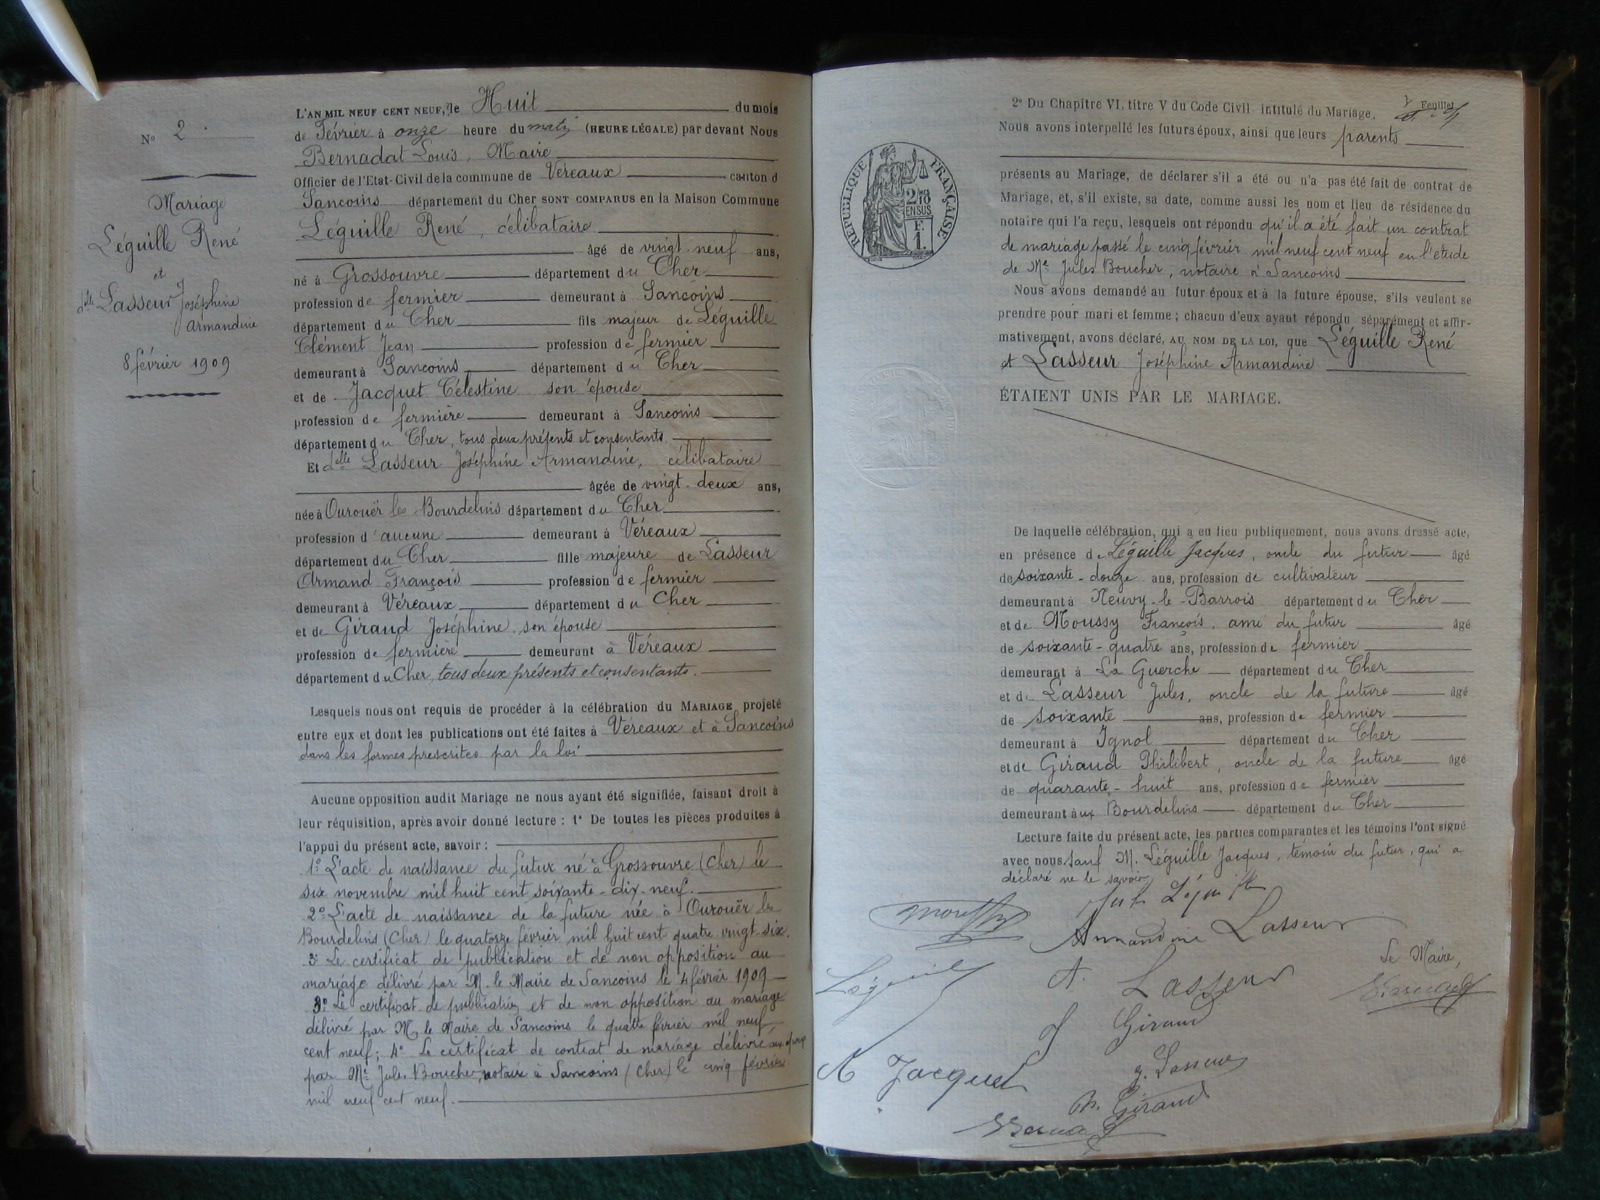 N° 2.
Mariage
Léguille René
et
dlle Lasseur Joséphine
Armandine
8 février 1909
L'AN MIL NEUF CENT NEUF, le Huit du mois
de Février à onze heure du matin (HEURE LÉGALE) par devant Nous
Bernadat Louis, Maire
Officier de l'Etat-Civil de la commune de Véreaux canton d
Sancoins département du Cher SONT COMPARUS en la Maison Commune
Léguille René, célibataire
âgé de vingt-neuf ans,
né à Grossouvre département du Cher
profession de fermier demeurant à Sancoins
département du Cher fils majeur de Léguille
Clément Jean profession de fermier
demeurant à Sancoins département du Cher
et de Jacquet Célestine son épouse
profession de fermière demeurant à Sancoins
département du Cher, tous deux présents et consentants
Et delle Lasseur Joséphine Armandine, célibataire
âgée de vingt-deux ans,
née à Ourouër les Bourdelins département du Cher
profession d'aucune demeurant à Véreaux
département du Cher fille majeure de Lasseur
Armand François profession de fermier
demeurant à Véreaux département du Cher
et de Giraud Joséphine son épouse
profession de fermière demeurant à Véreaux
département du Cher, tous deux présents et consentants.
Lesquels nous ont requis de procéder à la célébration du MARIAGE projeté
entre eux et dont les publications ont été faites à Véreaux et à Sancoins
dans les formes prescrites par la loi
Aucune opposition audit Mariage ne nous ayant été signifiée, faisant droit à
leur réquisition, après avoir donné lecture : 1° De toutes les pièces produites à
l'appui du présent acte, savoir :
1° L'acte de naissance du futur né à Grossouvre (Cher) le
six novembre mil huit cent soixante-dix-neuf.
2° L'acte de naissance de la future née à Ourouër les
Bourdelins (Cher) le quatorze février mil huit cent quatre vingt-six.
3° Le certificat de publication et de non opposition au
mariage délivré par M. le Maire de Sancoins le 4 février 1909
3° Le certificat de publication et de non opposition au mariage
délivré par M. le Maire de Sancoins le quatre février mil neuf
cent neuf; 4° Le certificat de contrat de mariage délivré
par Me Jules Boucher, notaire à Sancoins (Cher) le cinq février
mil neuf cent neuf.
2° Du Chapitre VI, titre V du Code Civil intitulé du Mariage.
Feuillet
Nous avons interpellé les futurs époux, ainsi que leurs parents
présents au Mariage, de déclarer s'il a été ou n'a pas été fait de contrat de
Mariage, et, s'il existe, sa date, comme aussi les nom et lieu de résidence du
notaire qui l'a reçu, lesquels ont répondu qu'il a été fait un contrat
de mariage passé le cinq février mil neuf cent neuf en l'étude
de Me Jules Boucher, notaire à Sancoins
Nous avons demandé au futur époux et à la future épouse, s'ils veulent se
prendre pour mari et femme ; chacun d'eux ayant répondu séparément et affir-
mativement, avons déclaré, AU NOM DE LA LOI, que Léguille René
et Lasseur Joséphine Armandine
ÉTAIENT UNIS PAR LE MARIAGE.
RÉPUBLIQUE FRANÇAISE
2/10 EN SUS
F.
1.
De laquelle célébration, qui a eu lieu publiquement, nous avons dressé acte,
en présence de Léguille Jacques, oncle du futur âgé
de soixante-douze ans, profession de cultivateur
demeurant à Neuvy-le-Barrois département du Cher
et de Moussy François, ami du futur âgé
de soixante-quatre ans, profession de fermier
demeurant à La Guerche département du Cher
et de Lasseur Jules, oncle de la future âgé
de soixante ans, profession de fermier
demeurant à Ignol département du Cher
et de Giraud Philibert, oncle de la future âgé
de quarante-huit ans, profession de fermier
demeurant aux Bourdelins département du Cher
Lecture faite du présent acte, les parties comparantes et les témoins l'ont signé
avec nous, sauf M. Léguille Jacques, témoin du futur, qui a
déclaré ne le savoir
Moussy
Armandine Lasseur
Le Maire,
A. Lasseur
J Giraud
Jacquet
J. Lasseur
Ph. Giraud